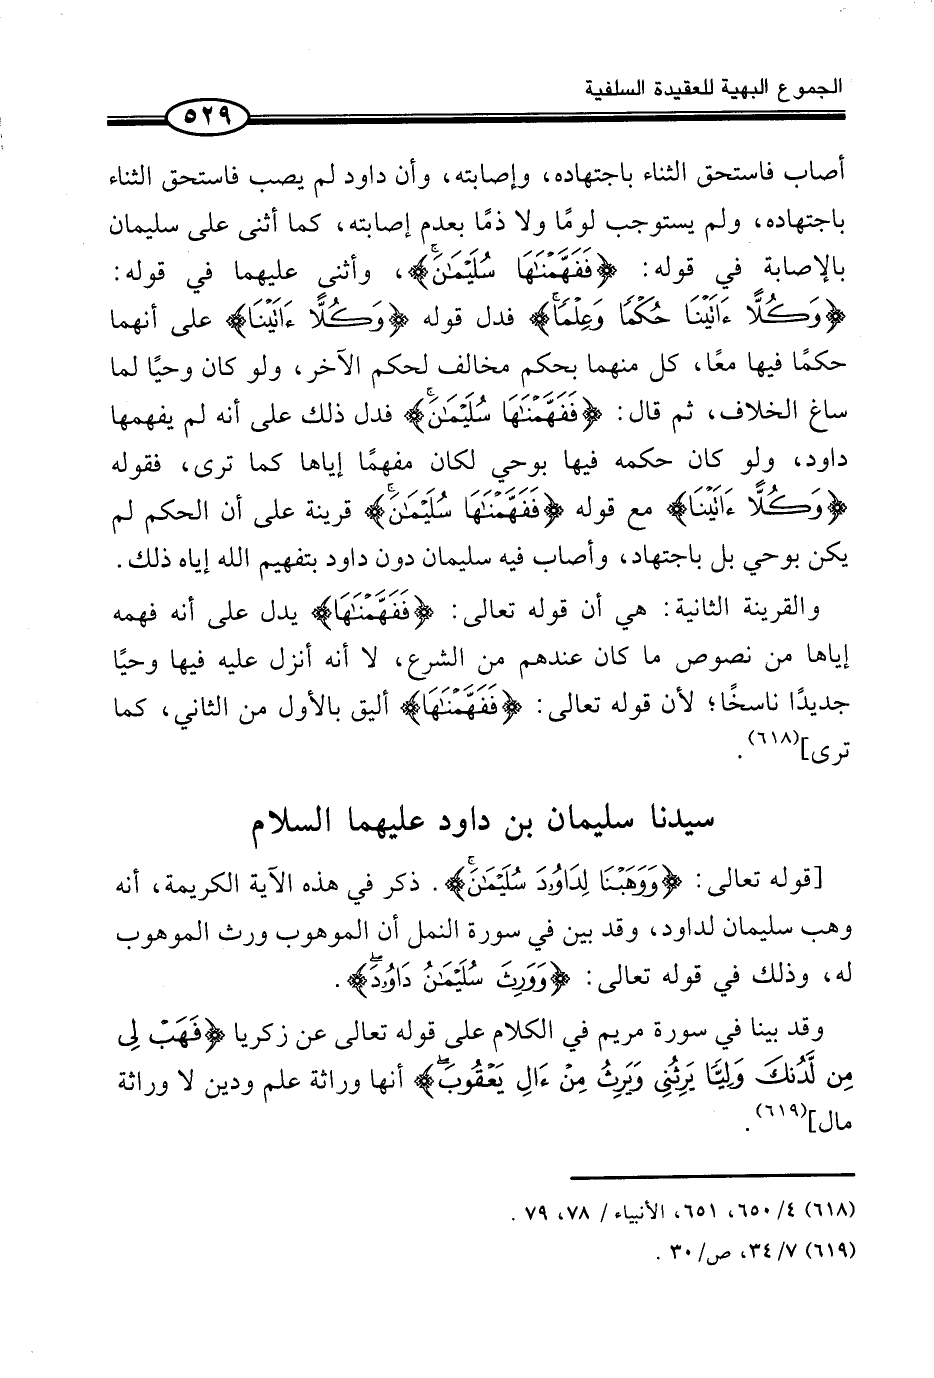 الجموع البهية للعقيدة السلفية
٥٢٩
أصاب فاستحق الثناء باجتهاده، وإصابته، وأن داود لم يصب فاستحق الثناء
باجتهاده، ولم يستوجب لومًا ولا ذمًا بعدم إصابته، كما أثنى على سليمان
بالإصابة في قوله: ﴿فَفَهَّمْنَٰهَا سُلَيْمَٰنَۚ﴾، وأثنى عليهما في قوله:
﴿وَكُلًّا ءَاتَيْنَا حُكْمًا وَعِلْمًاۚ﴾ فدل قوله ﴿وَكُلًّا ءَاتَيْنَا﴾ على أنهما
حكمًا فيها معًا، كل منهما بحكم مخالف لحكم الآخر، ولو كان وحيًا لما
ساغ الخلاف، ثم قال: ﴿فَفَهَّمْنَٰهَا سُلَيْمَٰنَۚ﴾ فدل ذلك على أنه لم يفهمها
داود، ولو كان حكمه فيها بوحي لكان مفهمًا إياها كما ترى، فقوله
﴿وَكُلًّا ءَاتَيْنَا﴾ مع قوله ﴿فَفَهَّمْنَٰهَا سُلَيْمَٰنَۚ﴾ قرينة على أن الحكم لم
يكن بوحي بل باجتهاد، وأصاب فيه سليمان دون داود بتفهيم الله إياه ذلك.
والقرينة الثانية: هي أن قوله تعالى: ﴿فَفَهَّمْنَٰهَا﴾ يدل على أنه فهمه
إياها من نصوص ما كان عندهم من الشرع، لا أنه أنزل عليه فيها وحيًا
جديدًا ناسخًا؛ لأن قوله تعالى: ﴿فَفَهَّمْنَٰهَا﴾ أليق بالأول من الثاني، كما
ترى](٦١٨).
سيدنا سليمان بن داود عليهما السلام
[قوله تعالى: ﴿وَوَهَبْنَا لِدَاوُۥدَ سُلَيْمَٰنَۚ﴾. ذكر في هذه الآية الكريمة، أنه
وهب سليمان لداود، وقد بين في سورة النمل أن الموهوب ورث الموهوب
له، وذلك في قوله تعالى: ﴿وَوَرِثَ سُلَيْمَٰنُ دَاوُۥدَۖ﴾.
وقد بينا في سورة مريم في الكلام على قوله تعالى عن زكريا ﴿فَهَبْ لِى
مِن لَّدُنكَ وَلِيًّا يَرِثُنِى وَيَرِثُ مِنْ ءَالِ يَعْقُوبَۖ﴾ أنها وراثة علم ودين لا وراثة
مال](٦١٩).
(٦١٨) ٤/ ٦٥٠، ٦٥١، الأنبياء / ٧٨، ٧٩.
(٦١٩) ٧/ ٣٤، ص/ ٣٠.